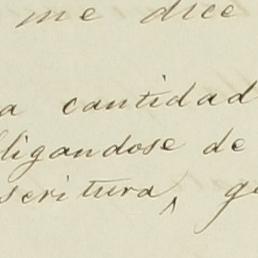 me dice
a cantidad
ligandose de
scritura, g